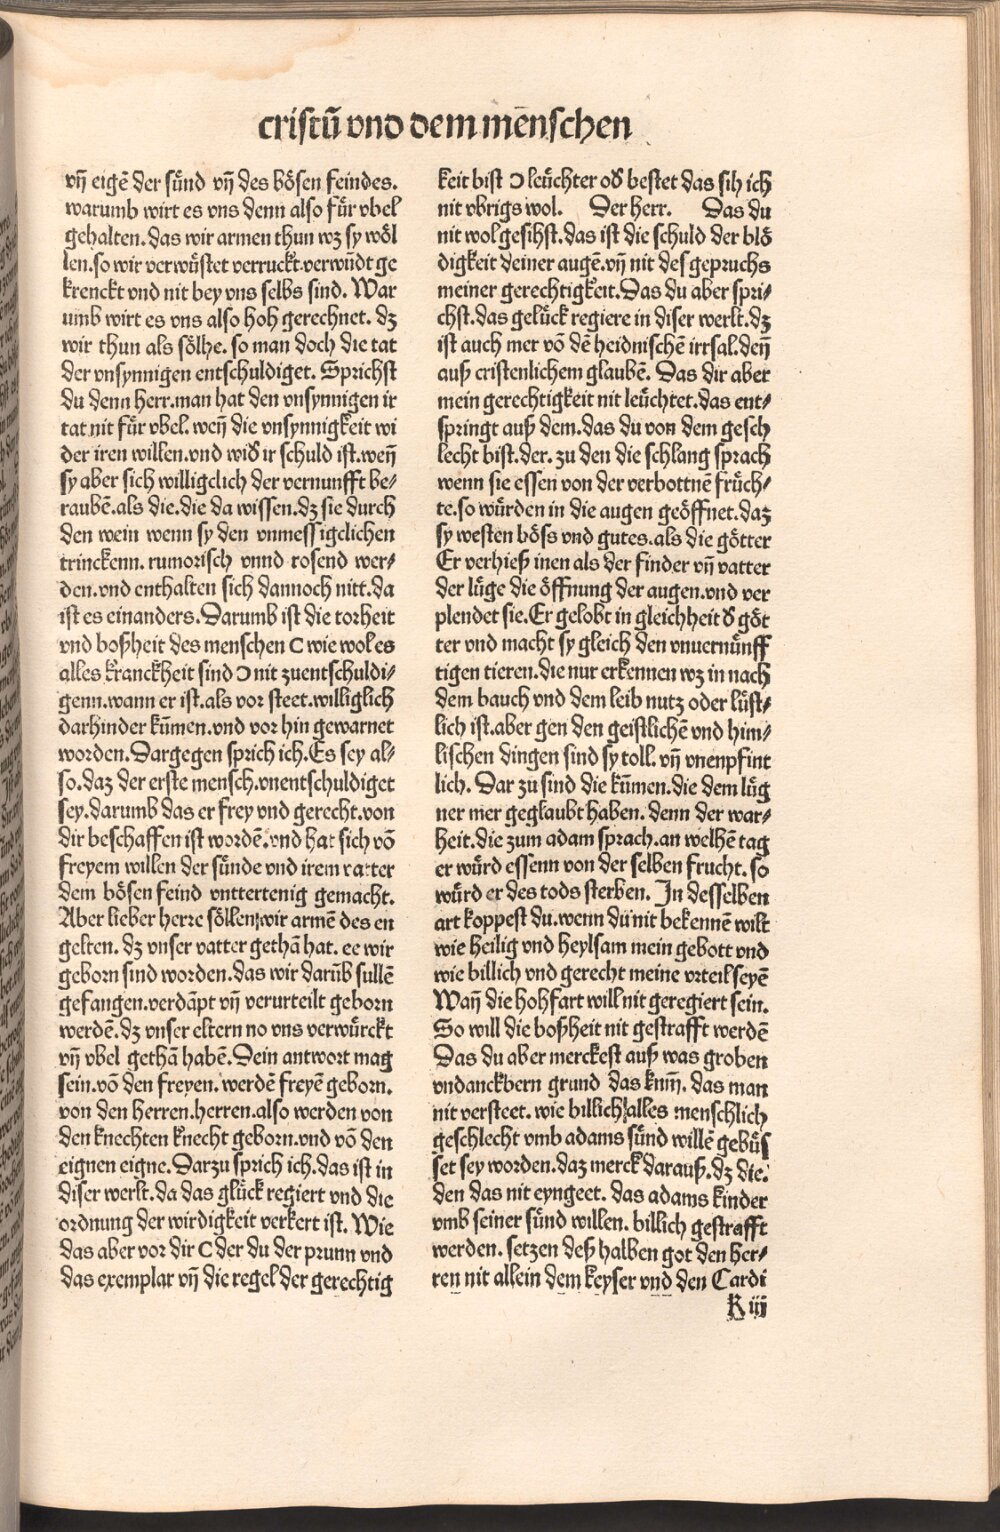 cristū vnd dem mēnschen
vn̄ eigē der sünd vn̄ des bösen feindes.
warumb wirt es vns denn also für vbel
gehalten. das wir armen thun wz sy wöl
len. so wir verwüstet verruckt. verwūdt ge
krenckt vnd nit bey vns selbs sind. War
umb wirt es vns also hoh gerechnet. dz
wir thun als sölhe. so man doch die tat
der vnsynnigen entschuldiget. Sprichst
du denn herr. man hat den vnsynnigen ir
tat nit für vbel. wen̄ die vnsynnigkeit wi
der iren willen. vnd wid̕ ir schuld ist. wen̄
sy aber sich williglich der vernunfft be⸗
raubē. als die. die da wissen. dz sie durch
den wein wenn sy den vnmessigclichen
trinckenn. rumorisch vnnd rosend wer⸗
den. vnd enthalten sich dannoch nitt. da
ist es einanders. Darumb ist die torheit
vnd boßheit des menschen C wie wol es
alles kranckheit sind Ɔ nit zuentschuldi⸗
genn. wann er ist. als vor steet. williglich
darhinder kūmen. vnd vor hin gewarnet
worden. Dargegen sprich ich. Es sey al⸗
so. daz der erste mensch. vnentschuldiget
sey. darumb das er frey vnd gerecht. von
dir beschaffen ist wordē. vnd hat sich vō
freyem willen der sünde vnd irem vatter
dem bösen feind vnttertenig gemacht.
Aber lieber herre söllen wir armē des en
gelten. dz vnser vatter gethā hat. ee wir
geborn sind worden. das wir darūb sullē
gefangen. verdāpt vn̄ verurteilt geborn
werdē. dz vnser eltern no vns verwürckt
vn̄ vbel gethā habē. Dein antwort mag
sein. vō den freyen. werdē freyē geborn.
von den herren. herren. also werden von
den knechten knecht geborn. vnd vō den
eignen eigne. Darzu sprich ich. das ist in
diser werlt. da das glück regiert vnd die
ordnung der wirdigkeit verkert ist. Wie
das aber vor dir C der du der prunn vnd
das exemplar vn̄ die regel der gerechtig
keit bist Ɔ leüchter od̕ bestet das sih ich
nit vbrigs wol. Der herr. Das du
nit wol gesihst. das ist die schuld der blö
digkeit deiner augē. vn̄ nit des gepruchs
meiner gerechtigkeit. Das du aber spri⸗
chst. das gelück regiere in diser werlt. dz
ist auch mer vō dē heidnischē irrsal. den̄
auß cristenlichem glaubē. Das dir aber
mein gerechtigkeit nit leüchtet. das ent⸗
springt auß dem. das du von dem gesch
lecht bist. der. zu den die schlang sprach
wenn sie essen von der verbottnē früch⸗
te. so würden in die augen geöffnet. daz
sy westen böss vnd gutes. als die götter
Er verhieß inen als der finder vn̄ vatter
der lüge die öffnung der augen. vnd ver
plendet sie. Er gelobt in gleichheit d̕ göt
ter vnd macht sy gleich den vnuernünff
tigen tieren. die nur erkennen wz in nach
dem bauch vnd dem leib nutz oder lüst⸗
lich ist. aber gen den geistlichē vnd him⸗
lischen dingen sind sy toll. vn̄ vnenpfint
lich. Dar zu sind die kūmen. die dem lüg
ner mer geglaubt haben. denn der war⸗
heit. die zum adam sprach. an welhē tag
er würd essenn von der selben frucht. so
würd er des tods sterben. In desselben
art koppest du. wenn du nit bekennē wilt
wie heilig vnd heylsam mein gebott vnd
wie billich vnd gerecht meine vrteil seyē
Wan̄ die hohfart will nit geregiert sein.
So will die boßheit nit gestrafft werdē
Das du aber merckest auß was groben
vndanckbern grund das kum̄. das man
nit versteet. wie billich alles menschlich
geschlecht vmb adams sünd willē gebüs
set sey worden. daz merck darauß. dz die.
den das nit eyngeet. das adams kinder
vmb seiner sünd willen. billich gestrafft
werden. setzen deß halben got den her⸗
ren nit allein dem keyser vnd den Cardi
R iij